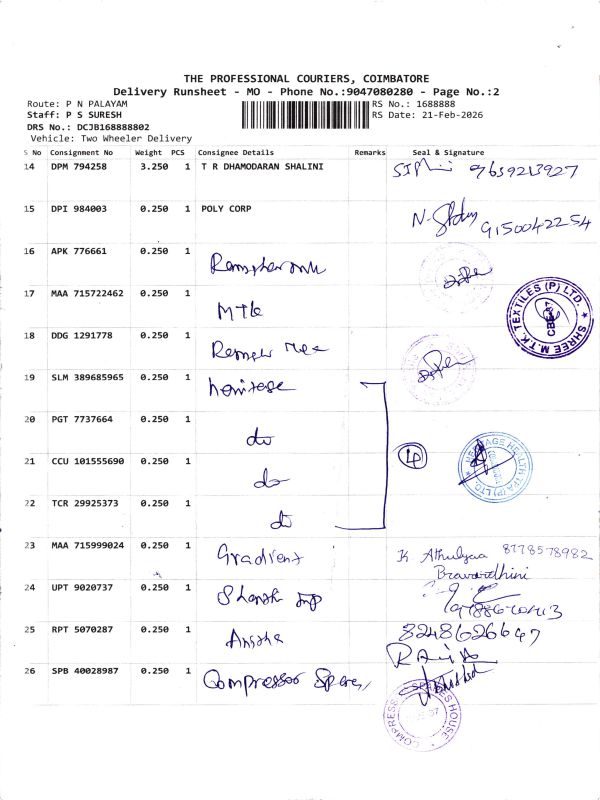 THE PROFESSIONAL COURIERS, COIMBATORE
Delivery Runsheet - MO - Phone No.:9047080280 - Page No.:2
Route: P N PALAYAM RS No.: 1688888
Staff: P S SURESH RS Date: 21-Feb-2026
DRS No.: DCJB168888802
Vehicle: Two Wheeler Delivery
S No Consignment No Weight PCS Consignee Details Remarks Seal & Signature
14 DPM 794258 3.250 1 T R DHAMODARAN SHALINI 9659213927
15 DPI 984003 0.250 1 POLY CORP 9150042254
16 APK 776661 0.250 1
17 MAA 715722462 0.250 1 MTK
SHREE M.T.K. TEXTILES (P) LTD. CBE-37
18 DDG 1291778 0.250 1
19 SLM 389685965 0.250 1 heritage
20 PGT 7737664 0.250 1 do
21 CCU 101555690 0.250 1 do 4
HERITAGE HEALTH TPA (P) LTD.
22 TCR 29925373 0.250 1 do
23 MAA 715999024 0.250 1 Gradient K. Athulyaa 8778578982
24 UPT 9020737 0.250 1
25 RPT 5070287 0.250 1 8248626647
26 SPB 40028987 0.250 1 Compressor Spares
COMPRESSOR SPARES HOUSE